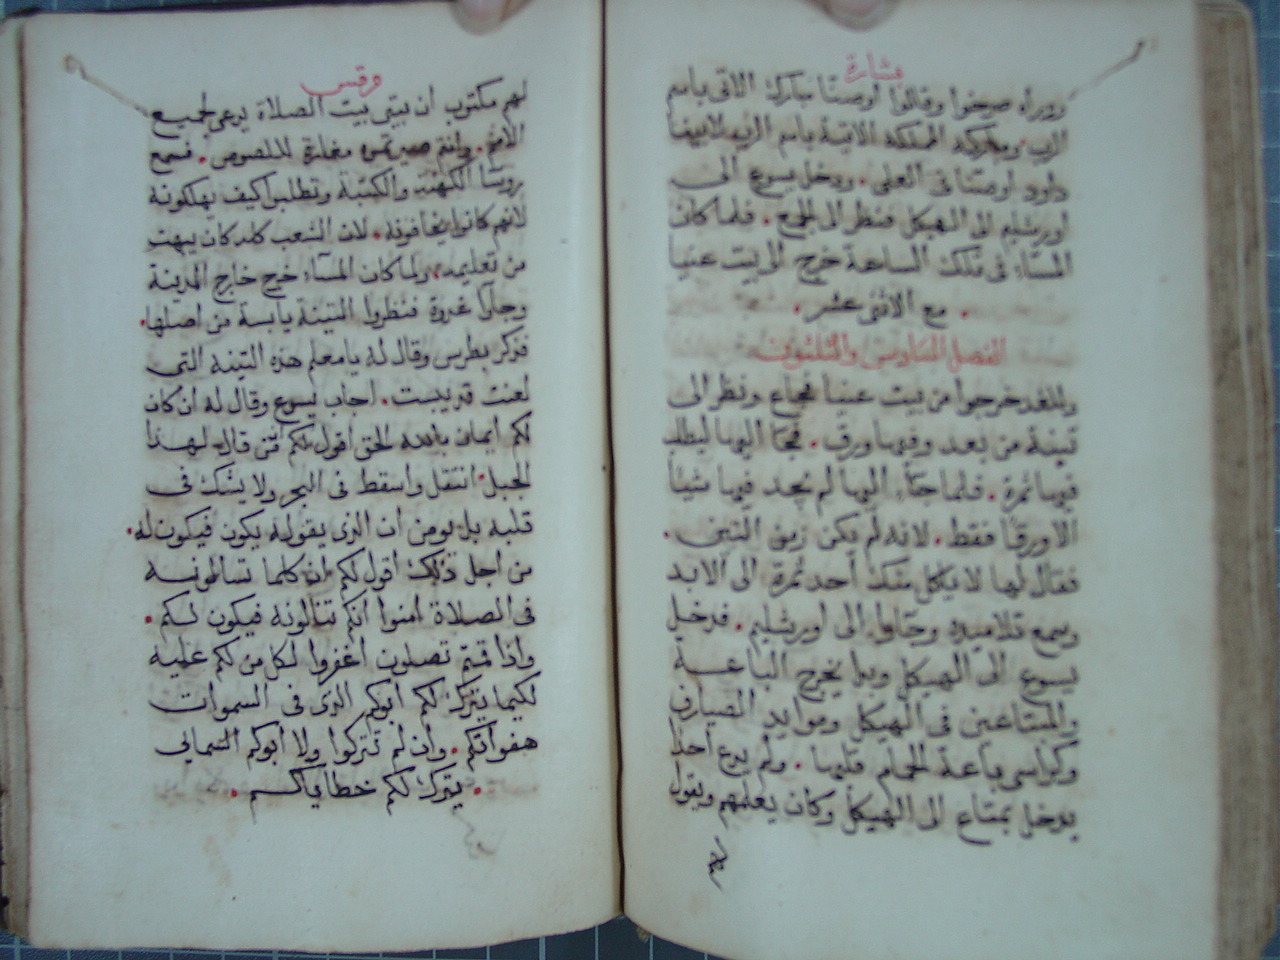 بشارة
ووراه صرخوا وقالوا اوصنا مبارك الاتي باسم
الرب ومباركه المملكه الاتية باسم الرب لابينا
داود اوصنا في العلى . ودخل يسوع الى
اورشليم الى الهيكل فنظر الى الجميع . فلما كان
المسآء في تلك الساعة خرج الى بيت عنيا
. مع الاثنى عشر .
الفصل السادس والثلثون
وللغد خرجوا من بيت عنيا فجاع ونظر الى
تينة من بعد وفيها ورق . فجآ اليها ليطلب
فيها ثمرة . فلما جآء اليها لم يجد فيها شيئا
الا ورقا فقط . لانه لم يكن زمن التين .
فقال لها لا ياكل منك احد ثمرة الى الابد
وسمع تلاميذه وجآوا الى اورشليم . فدخل
يسوع الى الهيكل وبدا يخرج الباعة
والمبتاعين في الهيكل وموايد الصيارف
وكراسى باعة الحمام قلبها . ولم يدع احدا
يدخل بمتاع الى الهيكل وكان يعلمهم ويقول
مرقس
لهم مكتوب ان بيتي بيت الصلاة يدعى لجميع
الامم . وانتم صيرتموه مغارة للصوص . فسمع
روسا الكهنة والكتبة وتطلبوا كيف يهلكونه
لانهم كانوا يخافونه . لان الشعب كله كان يبهت
من تعليمه . ولما كان المسآء خرج خارج المدينة
وجآوا غدوة فنظروا التينة يابسة من اصلها .
فذكر بطرس وقال له يا معلم هذه التينة التي
لعنت قد يبست . اجاب يسوع وقال له ان كان
لكم ايمان بالله الحق اقول لكم ان من قال لهذا
الجبل انتقل واسقط في البحر ولا يشك في
قلبه بل يومن ان الذى يقوله يكون فيكون له .
من اجل ذلك اقول لكم ان كلما تسالونه
في الصلاة امنوا انكم تنالونه فيكون لكم .
واذا قمتم تصلون اغفروا لكل من لكم عليه
لكيما يترك لكم ابوكم الذى في السموات
هفواتكم . وان لم تتركوا ولا ابوكم السمائي
. يترك لكم خطاياكم .